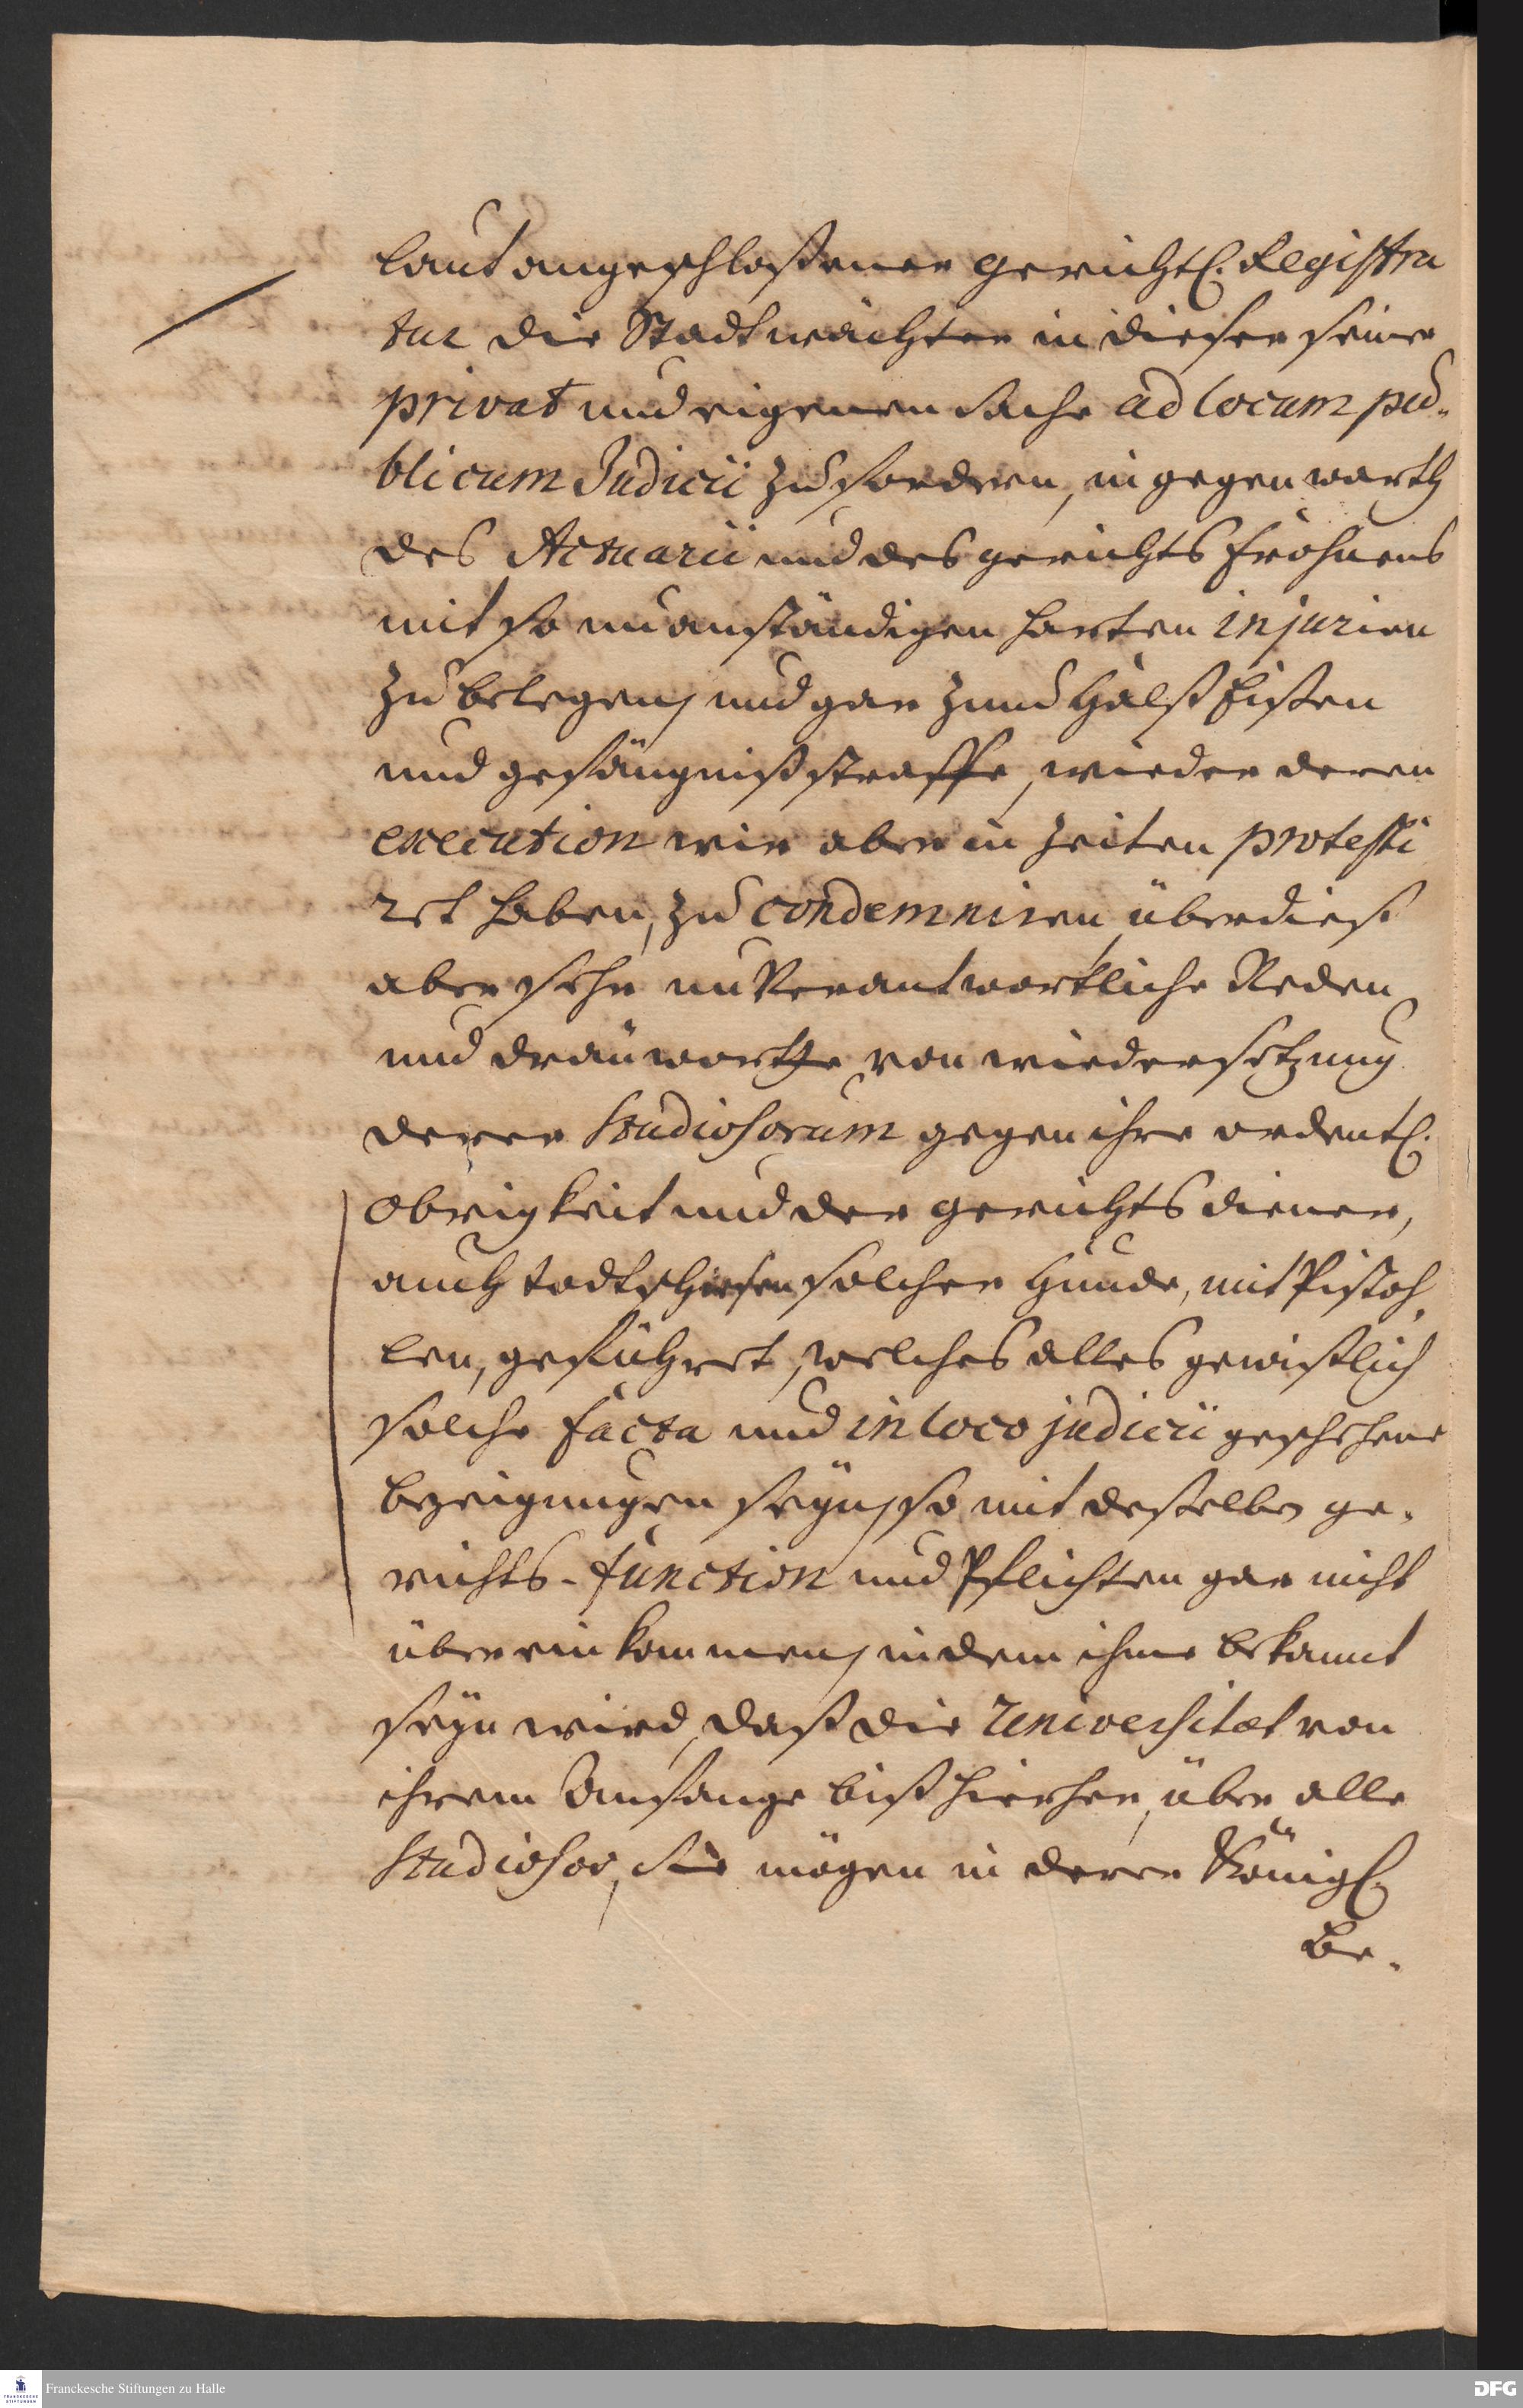 laut angeschloßener gerichtl. Registra
tur die Stadtwächter in dieser seiner
privat und eigenen sache ad locum pu-
blicum Judicii zu fordern, in gegenwarth
des Actuarii und des gerichts frohnens
mit so unanständigen harten injurien
zu belegen, und gar zum Halß Eisen
und gefängnißstraffe, wieder deren
execution wir aber in zeiten protesti
ret haben, zu condemniren, überdieß
aber sehr unverantwortliche Reden
und dräuworthe von wiedersetzung
derer Studiosorum gegen ihre ordentl.
obrigkeit und der gerichts diener,
auch todtschiesen solcher Hunde, mit Pistoh
len, geführet, welches alles gewißlich
solche facta und in loco judicii geschehene
bezeigungen seyn, so mit deßelben ge-
richts-function und Pflichten gar nicht
überein kommen, indem ihme bekannt
seyn wird, daß die Universitæt von
ihrem Anfange biß hierher, über alle
Studiosos, Sie mögen in derer Königl.
Be-
Franckesche Stiftungen zu Halle
DFG